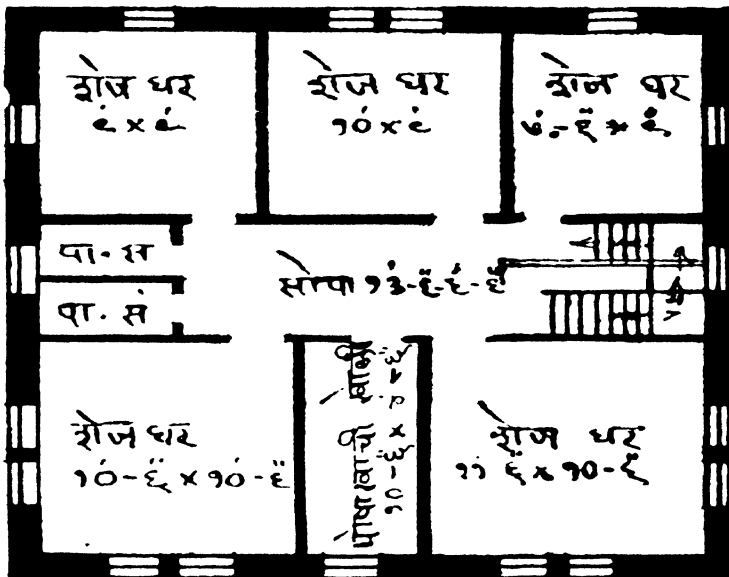 शेज घर
९' × ९'
शेज घर
१०' × ९'
शेज घर
पा. स
पा. सं
सोपा १३'-६"-६'-६"
शेज घर
१०'-६" × १०'-६"
पोषाखाची खोली
१०-६" ×
शेज घर
११ ६" × १०-६"